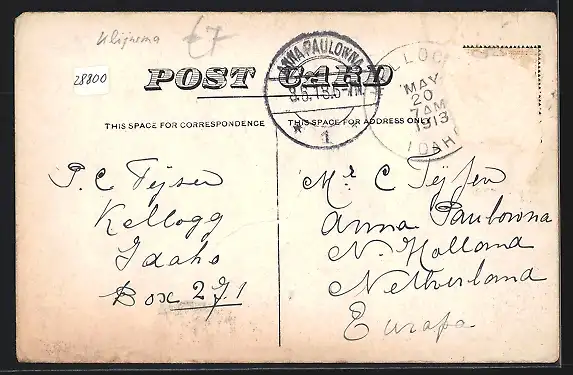 £7
28800
POST CARD
ANNA PAULOWNA
1
KELLOGG
MAY
20
7 AM
1913
IDAHO
THIS SPACE FOR CORRESPONDENCE
THIS SPACE FOR ADDRESS ONLY
P. C. Tijsen
Kellogg
Idaho
Box 271
Mr C Teijsen
Anna Paulowna
N. Holland
Netherland
Europa